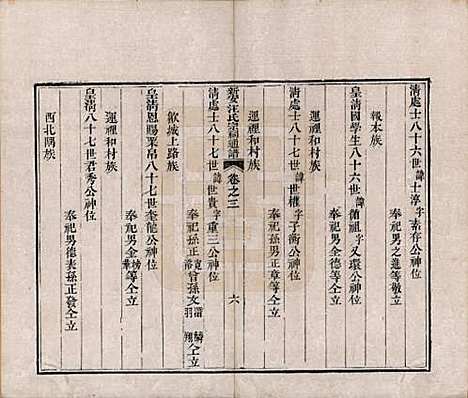 清處士八十六世諱士淳字素存公神位
奉祀男之進等敬立
報本族
皇清國學生八十六世諱蘭馥字又環公神位
奉祀男全德等仝立
還裡和村族
清處士八十七世諱世權字子衡公神位
奉祀男正章等仝立
還裡和村族
新安汪氏宗祠通譜 卷之三 六
清處士八十七世諱世貴字重三公神位
奉祀孫正 曾孫文 仝立
歙城上路族
皇清恩賜粟帛八十七世奎龍公神位
奉祀男金榜等仝立
還裡和村族
皇清八十七世君秀公神位
奉祀男德表孫正發仝立
西北隅族